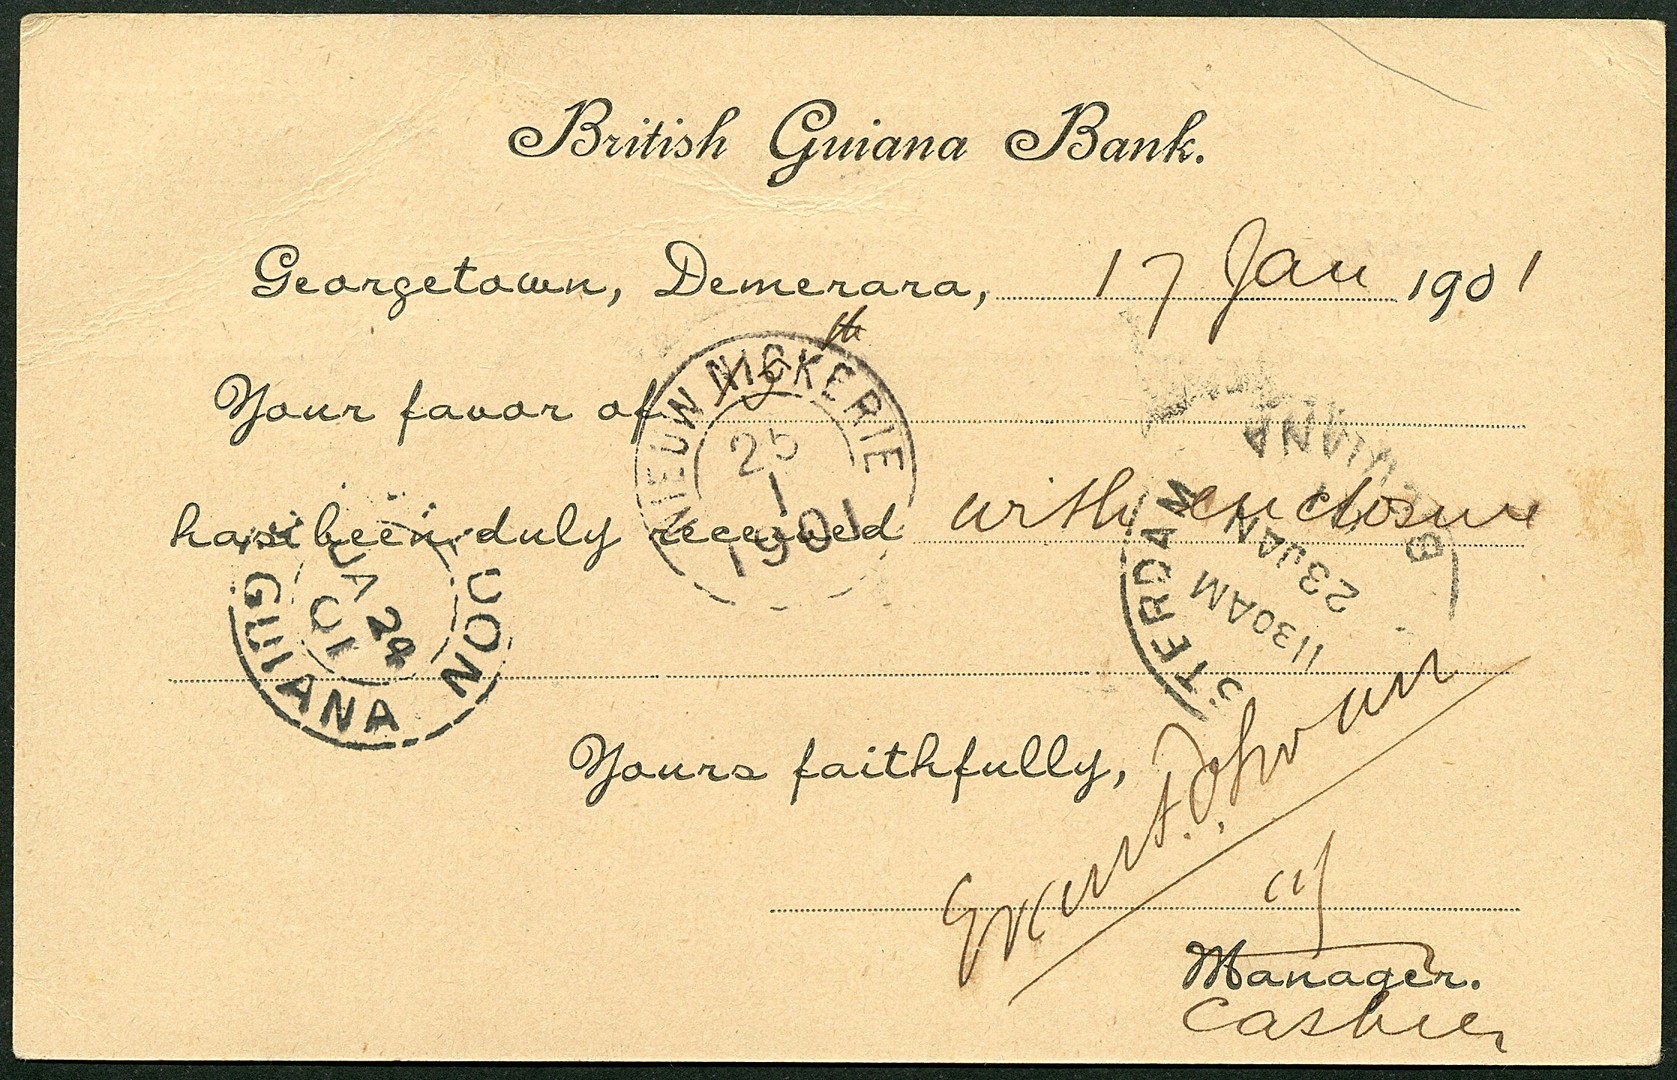 British Guiana Bank.
Georgetown, Demerara, 17 Jan 1901
Your favor of th
has been duly received with enclosure
Yours faithfully,
Manager.
Cashier
NIEUW NICKERIE
25
1
1901
GUIANA
JA 24
01
STERDAM
GUIANA
1130AM
23JAN